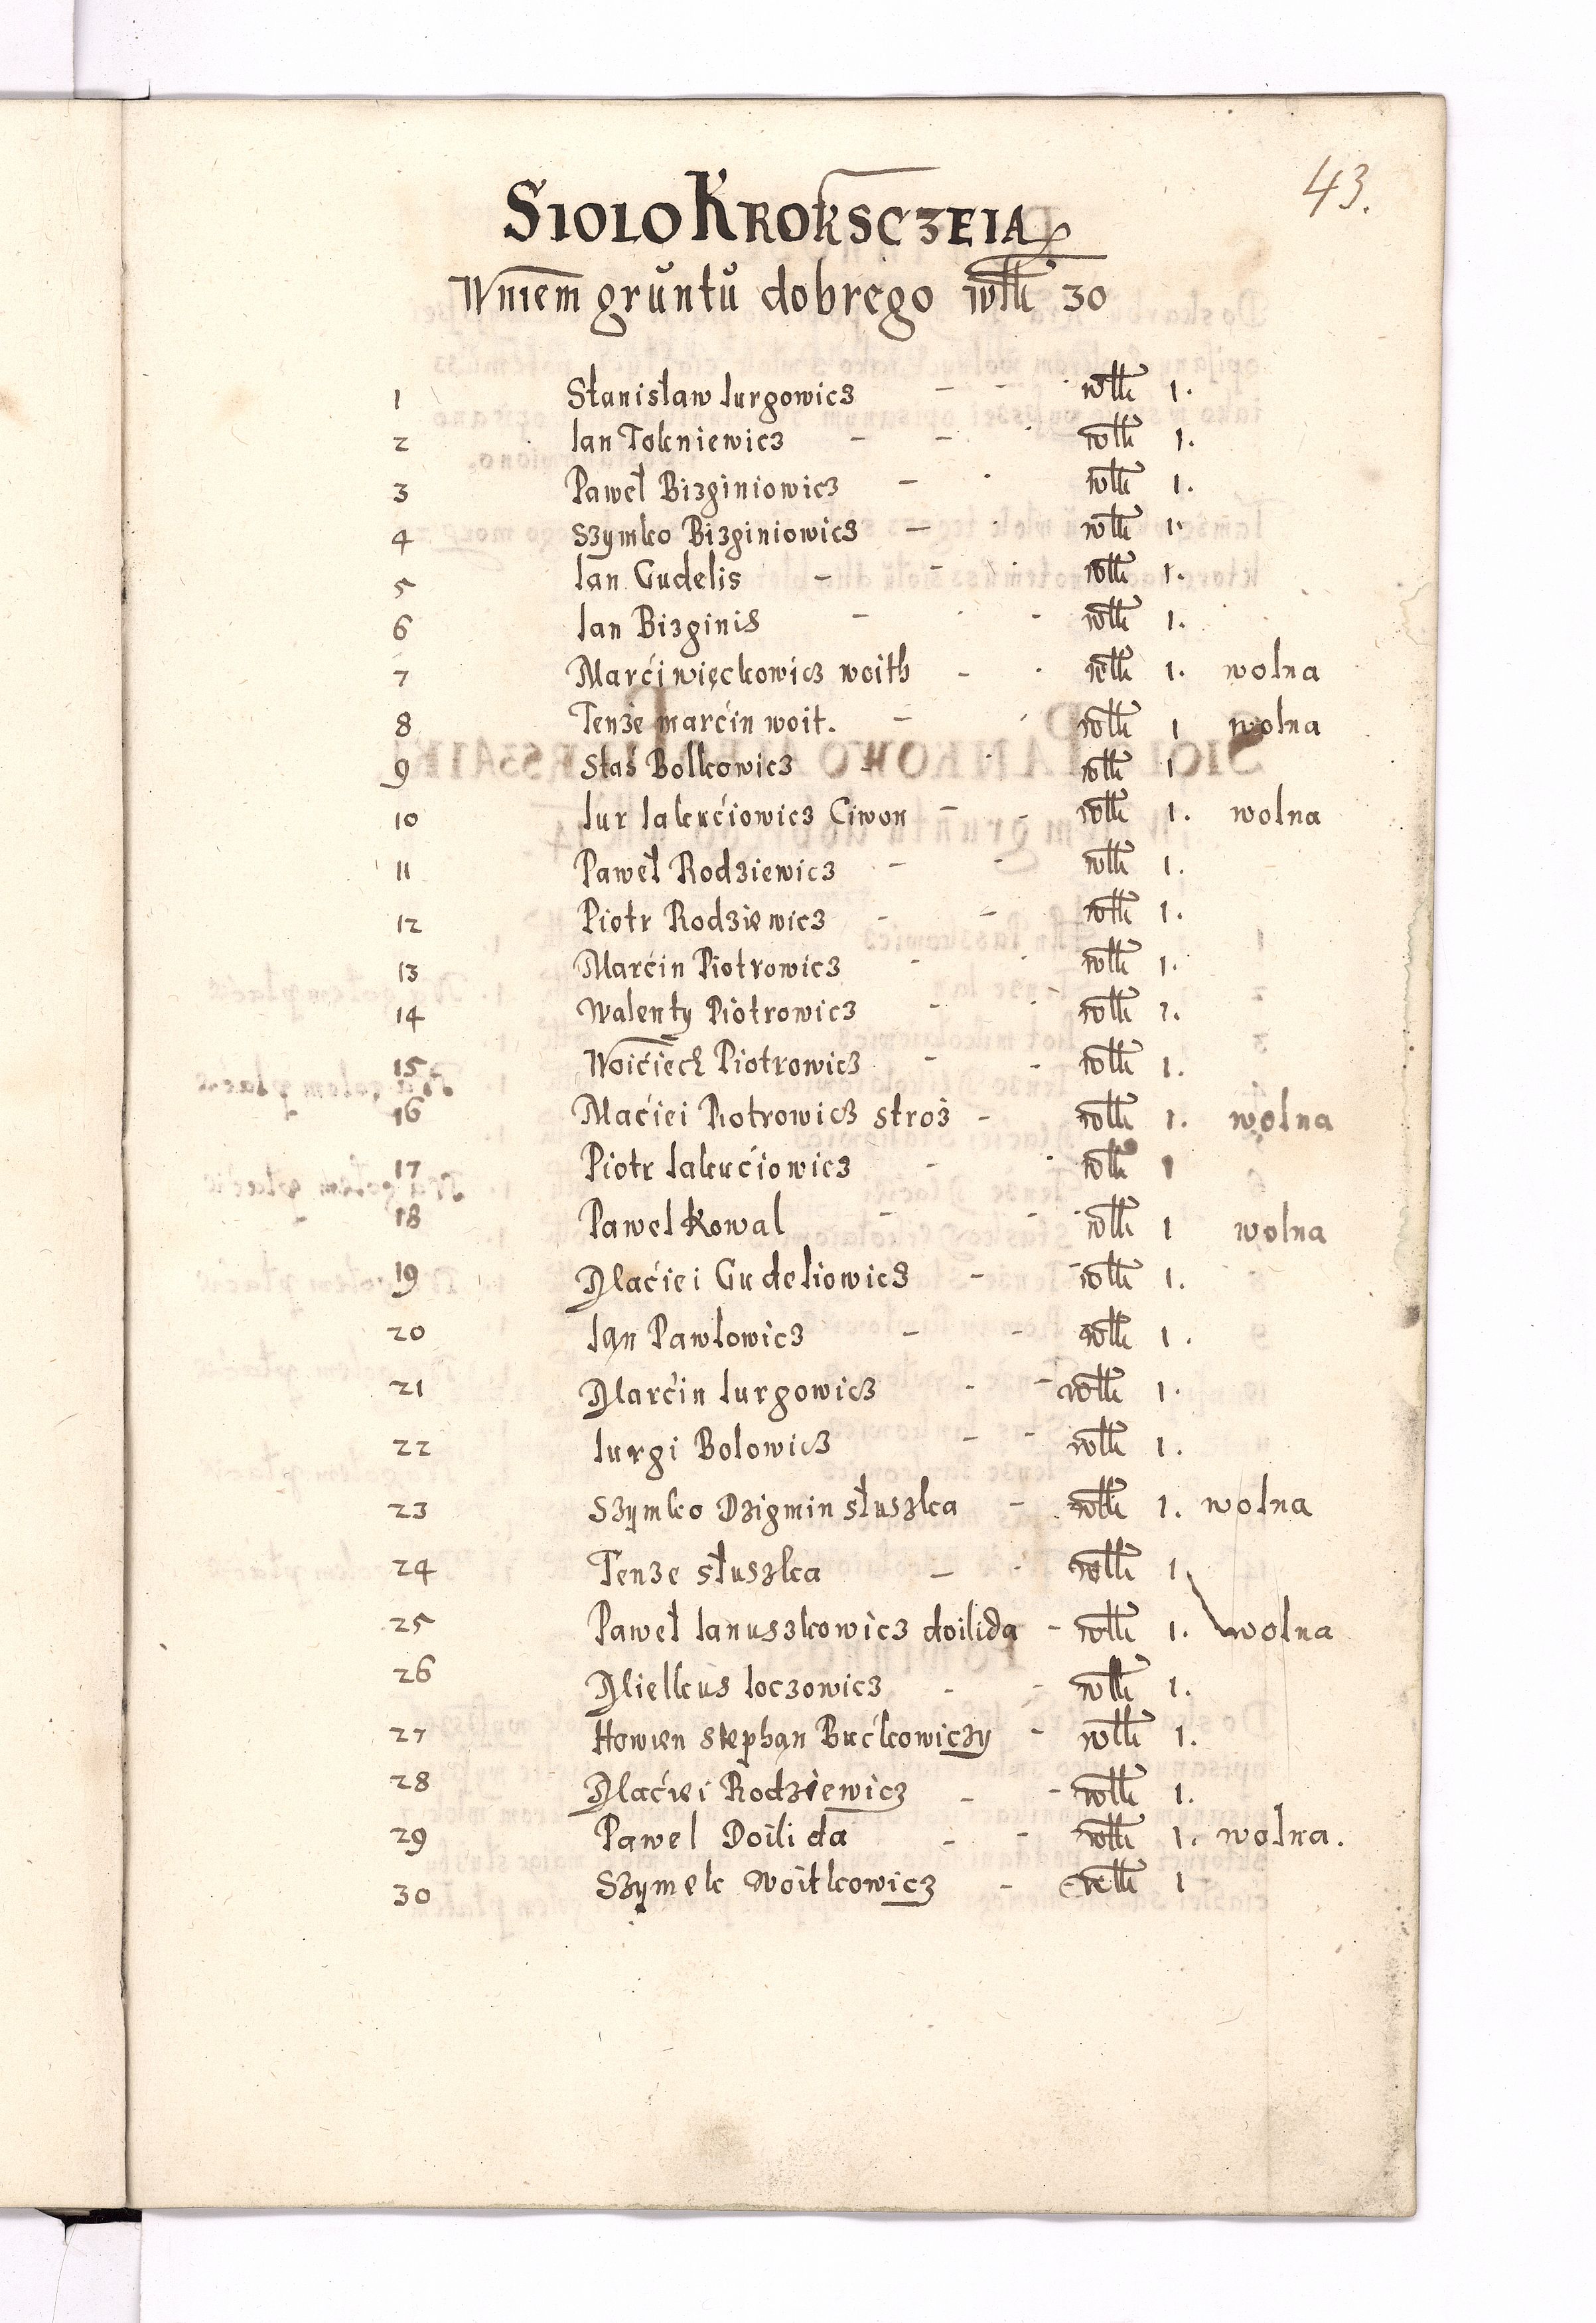 43.
SIOLO KROKSCZEIA
Wniem gruntu dobrego włk 30
1 Stanisław Iurgowicz - - włk 1.
2 Ian Tokniewicz - - włk 1.
3 Paweł Bizginiowicz - włk 1.
4 Szymko Bizginiowicz - włk 1.
5 Ian Gudelis - - włk 1.
6 Ian Bizginis - - włk 1.
7 Marći więckowicz woith - włk 1. wolna
8 Tenze marćin woit. - włk 1 wolna
9 Staś Bolkowicz - włk 1
10 Iur Iakućiowicz Ciwon - - włk 1. wolna
11 Paweł Rodziewicz - - włk 1.
12 Piotr Rodziewicz - - włk 1.
13 Marćin Piotrowicz - włk 1.
14 Walenty Piotrowicz - włk 1.
15 Woićiech Piotrowicz - - włk 1.
16 Maćiei Piotrowicz stroż - włk 1. wolna
17 Piotr Iakućiowicz - włk 1
18 Pawel Kowal - - włk 1 wolna
19 Maćiei Gudeliowicz - włk 1.
20 Ian Pawlowicz - - włk 1.
21 Marćin Iurgowicz - - włk 1.
22 Iurgi Bolowicz - - włk 1.
23 Szymko Dzigmin słuszka - włk 1. wolna
24 Tenze słuszka - włk 1
25 Paweł Ianuszkowicz doilida - włk 1. wolna
26 Mielkus Ioczowicz - - włk 1.
27 Howien Stephan Bućkowiczy - włk 1.
28 Maćiei Rodziewicz - - włk 1.
29 Pawel Doilida - - włk 1. wolna.
30 Szymek Woitkowicz - włk 1